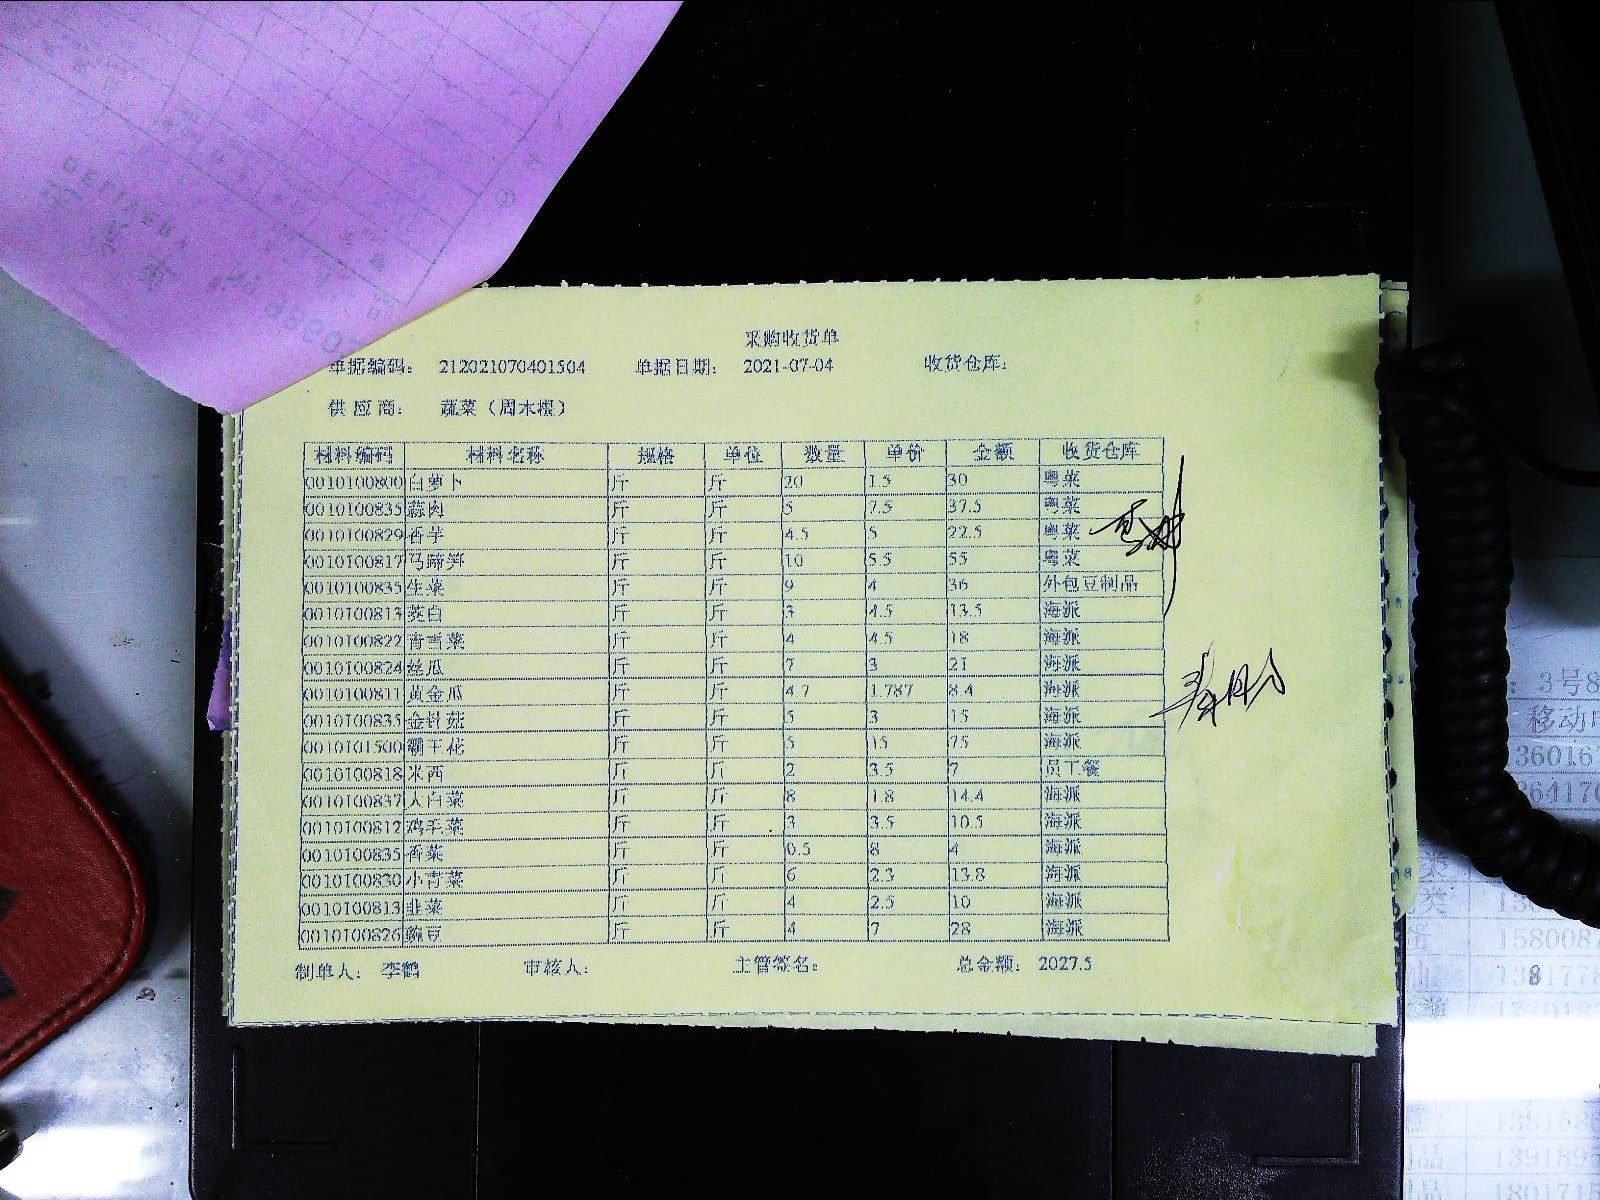 采购收货单
单据编码： 212021070401504 单据日期： 2021-07-04 收货仓库：
供应商： 蔬菜（周木根）
材料编码 材料名称 规格 单位 数量 单价 金额 收货仓库
0010100800 白萝卜 斤 斤 20 1.5 30 粤菜
0010100835 蒜肉 斤 斤 5 7.5 37.5 粤菜
0010100829 香芋 斤 斤 4.5 5 22.5 粤菜
0010100817 马蹄笋 斤 斤 10 5.5 55 粤菜
0010100835 生菜 斤 斤 9 4 36 外包豆制品
0010100813 茭白 斤 斤 3 4.5 13.5 海派
0010100822 青雪菜 斤 斤 4 4.5 18 海派
0010100824 丝瓜 斤 斤 7 3 21 海派
0010100811 黄金瓜 斤 斤 4.7 1.787 8.4 海派
0010100835 金针菇 斤 斤 5 3 15 海派
0010101500 霸王花 斤 斤 5 15 75 海派
0010100818 米西 斤 斤 2 3.5 7 员工餐
0010100837 大白菜 斤 斤 8 1.8 14.4 海派
0010100812 鸡毛菜 斤 斤 3 3.5 10.5 海派
0010100835 香菜 斤 斤 0.5 8 4 海派
0010100830 小青菜 斤 斤 6 2.3 13.8 海派
0010100813 韭菜 斤 斤 4 2.5 10 海派
0010100826 豌豆 斤 斤 4 7 28 海派
制单人： 李鹤 审核人： 主管签名： 总金额： 2027.5